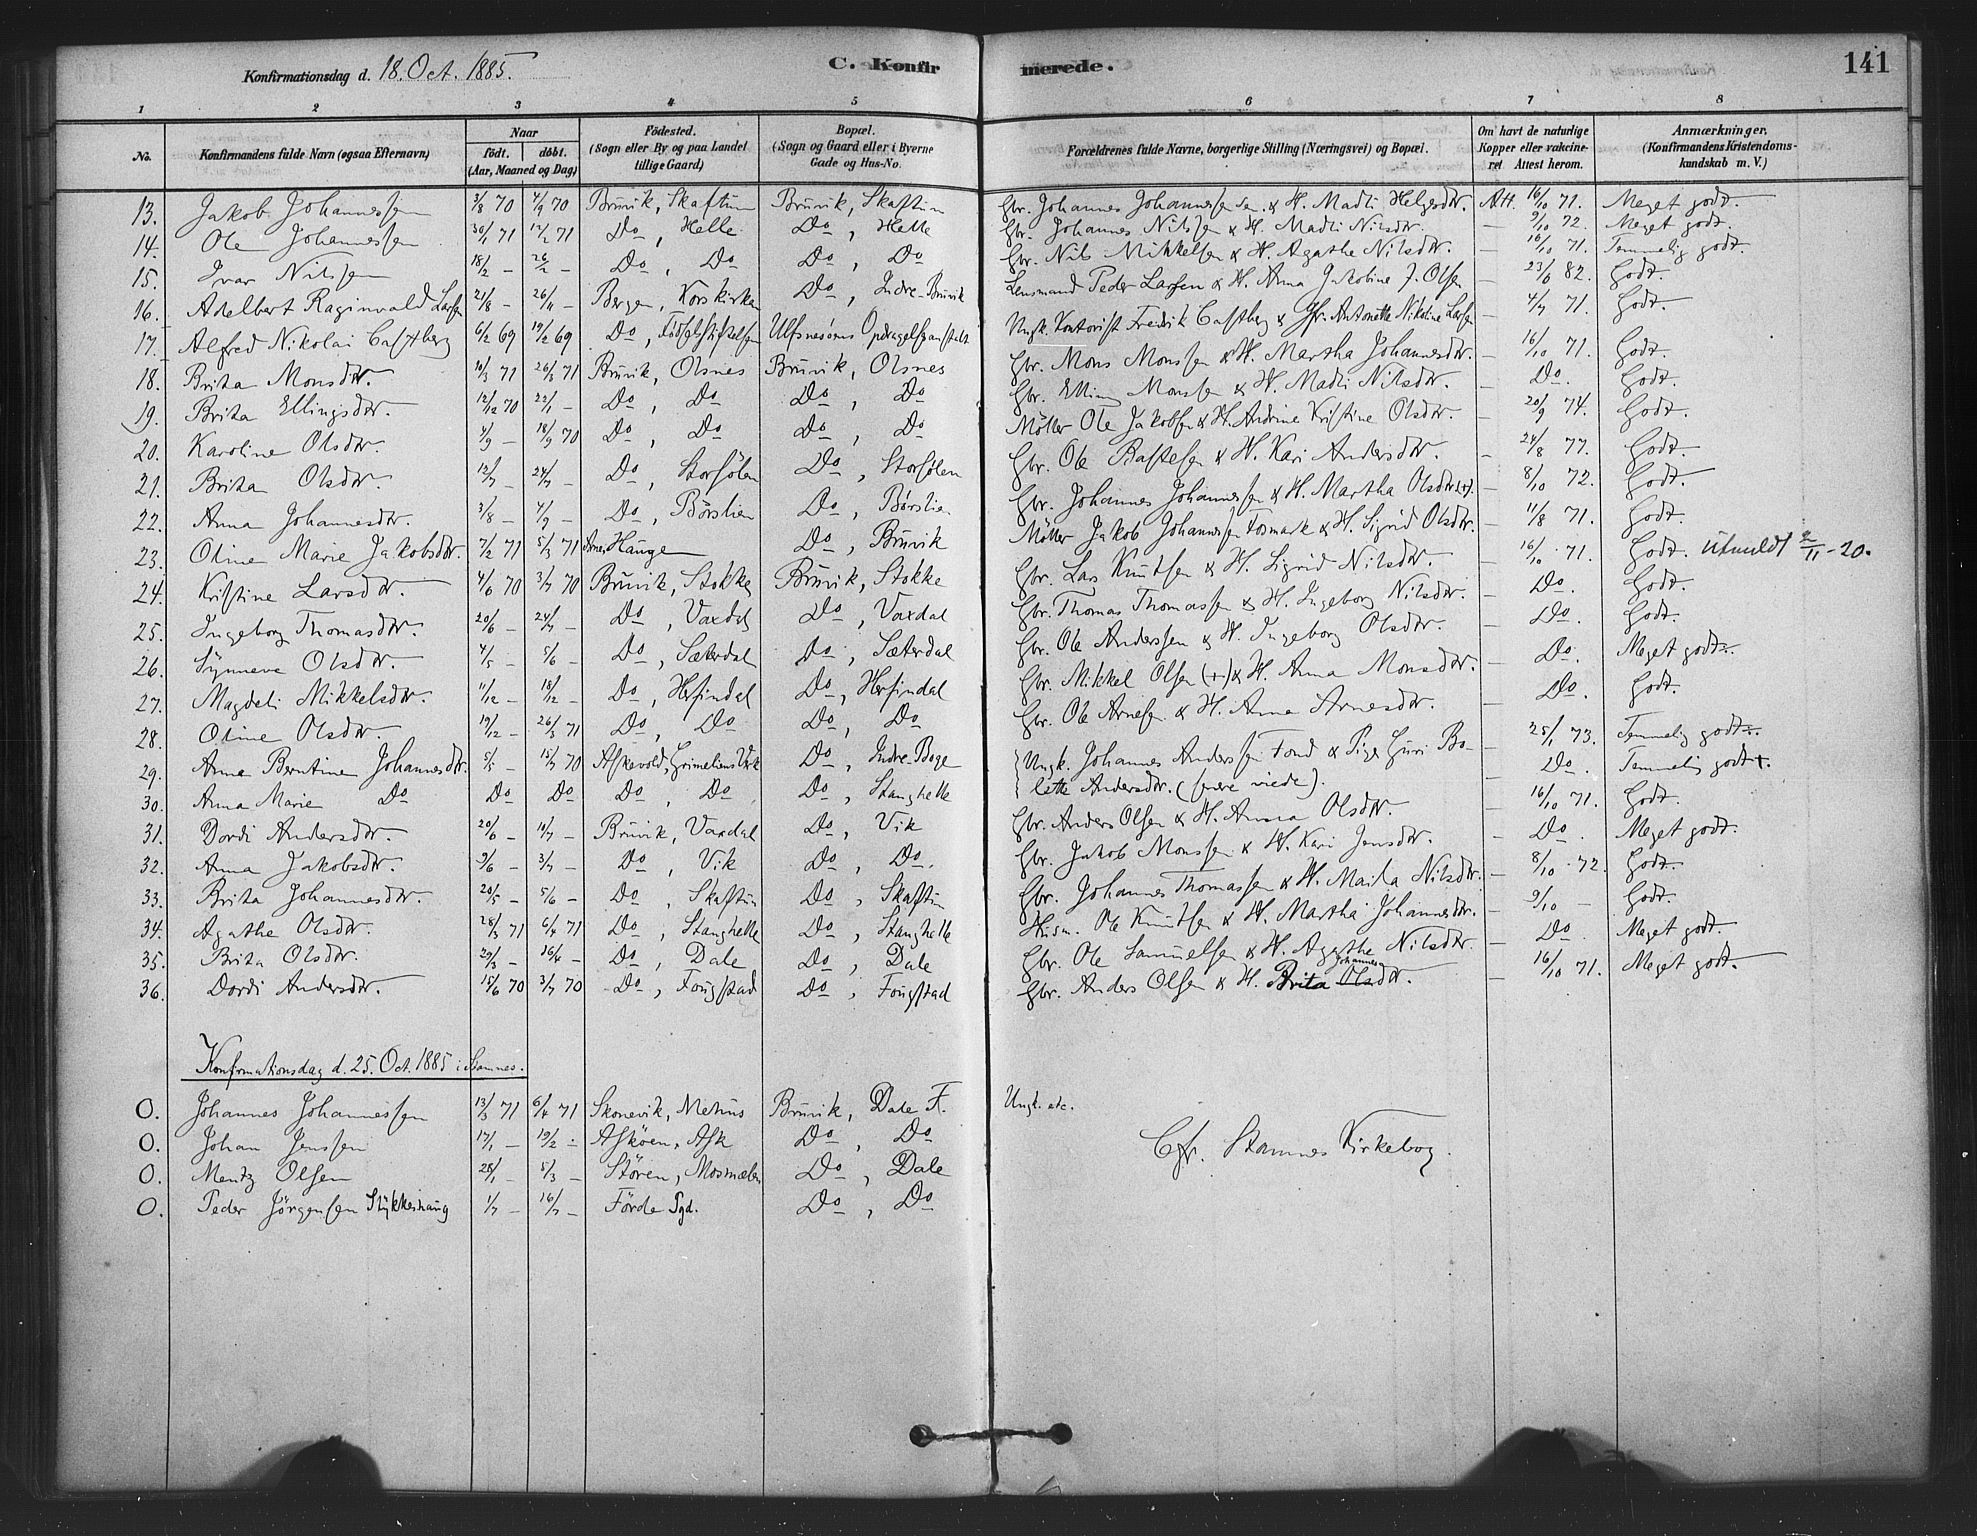 Konfirmationsdag d. 18. Oct. 1885. C. Konfirmerede. 141
1 2 3 4 5 6 7 8
No. Konfirmandens fulde Navn (ogsaa Efternavn) Naar født. døbt. (Aar, Maaned og Dag) Fødested. (Sogn eller By og paa Landet tillige Gaard) Bopæl. (Sogn og Gaard eller i Byerne Gade og Hus-No. Forældrenes fulde Navne, borgerlige Stilling (Næringsvei) og Bopæl. Om havt de naturlige Kopper eller vakcineret Attest herom. Anmærkninger. (Konfirmandens Kristendomskundskab m. V.)
13. Jakob Johannessen 3/8 70 4/9 70 Bruvik, Skaftun Bruvik, Skaftun Gbr. Johannes Johannessen sen. & H. Madli Helgesdtr. Att. 16/10 71. Meget godt.
14. Ole Johannessen 30/1 71 12/2 71 Do, Helle Do, Helle Gbr. Johannes Nilssen & H. Madli Nilsdtr. — 9/10 72. Meget godt.
15. Ivar Nilssen 18/2 — 26/2 — Do, Do Do, Do Gbr. Nils Mikkelsen & H. Agathe Nilsdtr. — 16/10 71. Temmelig godt.
16. Adelbert Raginvald Larsen 21/8 — 26/11 — Bergen, Korskirken Do, Indre-Bruvik Lensmand Peder Larsen & H. Anna Jakobine J. Olsen — 23/6 82. Godt.
17. Alfred Nikolai Castberg 6/2 69 19/2 69 Do, Fødselsstiftelsen Ulfsnesøens Opdragelsesanstalt Ungk. Kontorist Fredrik Castberg & Pge. Antonette Nikoline Larsen — 4/7 71. Godt.
18. Brita Monsdtr. 10/3 71 26/3 71 Bruvik, Olsnes Bruvik, Olsnes Gbr. Mons Monssen & H. Martha Johannesdtr. — 16/10 71. Godt.
19. Brita Ellingsdtr. 12/12 70 22/1 — Do, Do Do, Do Gbr. Elling Monssen & H. Madli Nilsdtr. — Do. Godt.
20. Karoline Olsdtr. 4/9 — 18/9 70 Do, Do Do, Do Møller Ole Jakobsen & H. Andrine Kristine Olsdtr. — 20/9 74. Godt.
21. Brita Olsdtr. 12/7 — 24/7 — Do, Storsølen Do, Storsølen Gbr. Ole Rastesen & H. Kari Andersdtr. — 24/8 77. Godt.
22. Anna Johannesdtr. 3/8 — 4/9 — Do, Børslien Do, Børslien Gbr. Johannes Johannessen & H. Martha Olsdtr. (+). — 8/10 72. Godt.
23. Oline Marie Jakobsdtr. 7/2 71 5/3 71 Arne, Hauge Do, Bruvik Møller Jakob Johannessen Tosmark & H. Sigrid Olsdtr. — 11/8 71. Godt.
24. Kristine Larsdtr. 4/6 70 3/7 70 Bruvik, Stokke Bruvik, Stokke Gbr. Lars Knutsen & H. Sigrid Nilsdtr. — 16/10 71. Godt. Utmeldt 2/11 - 20.
25. Ingeborg Thomasdtr. 20/6 — 24/7 — Do, Vaxdal Do, Vaxdal Gbr. Thomas Thomassen & H. Ingeborg Nilsdtr. — Do. Godt.
26. Synneve Olsdtr. 4/5 — 5/6 — Do, Sæterdal Do, Sæterdal Gbr. Ole Anderssen & H. Ingeborg Olsdtr. — Do. Godt.
27. Magdeli Mikkelsdtr. 11/12 — 18/12 — Do, Herfindal Do, Herfindal Gbr. Mikkel Olsen (+) & H. Anna Monsdtr. — Do. Meget godt.
28. Oline Olsdtr. 19/12 — 26/3 71 Do, Do Do, Do Gbr. Ole Arnesen & H. Anna Arnesdtr. — Do. Godt.
29. Anna Berntine Johannesdtr. 5/5 — 15/7 70 Askevold, Grimeliens Verk Do, Indre Boge Ungk. Johannes Anderssen Fond & Pige Guri Bo- — 25/1 73. Temmelig godt.
30. Anna Marie Do Do Do Do, Do Do, Stanghelle lette Andersdtr. (svere viede). — Do. Temmelig godt.
31. Dordi Andersdtr. 20/6 — 10/7 — Bruvik, Vaxdal Do, Vik Gbr. Anders Olsen & H. Anna Olsdtr. — 16/10 71. Godt.
32. Anna Jakobsdtr. 9/6 — 3/7 — Do, Vik Do, Do. Gbr. Jakob Monssen & H. Kari Jensdtr. — Do. Meget godt.
33. Brita Johannesdtr. 20/5 — 5/6 — Do, Skaftun Do, Skaftun Gbr. Johannes Thomassen & H. Marita Nilsdtr. — 8/10 72. Godt.
34. Agathe Olsdtr. 28/3 71 6/4 71 Do, Stanghelle Do, Stanghelle Husm. Ole Knutsen & H. Martha Johannesdtr. — 9/10 — Godt.
35. Brita Olsdtr. 29/3 — 16/4 — Do, Dale Do, Dale Gbr. Ole Samuelsen & H. Agathe Nilsdtr. — Do. Meget godt.
36. Dordi Andersdtr. 15/6 70 3/7 70 Do, Fougstad Do, Fougstad Gbr. Anders Olsen & H. Brita Olsdtr. Johannes — 16/10 71. Meget godt.
Konfirmationsdag d. 25. Oct. 1885 i Stamnes.
O. Johannes Johannessen 13/3 71 6/4 71 Skonevik, Mehus Bruvik, Dale F. Ungk. etc.
O. Johan Jenssen 17/1 — 19/2 — Askøen, Ask Do, Do Cfr. Stamnes Kirkebog.
O. Mentz Olsen 28/1 — 5/3 — Støren, Mosmælen Do, Dale
O. Peder Jørgensen Stykkeshaug 1/7 — 16/7 — Førde Sgd. Do, Do